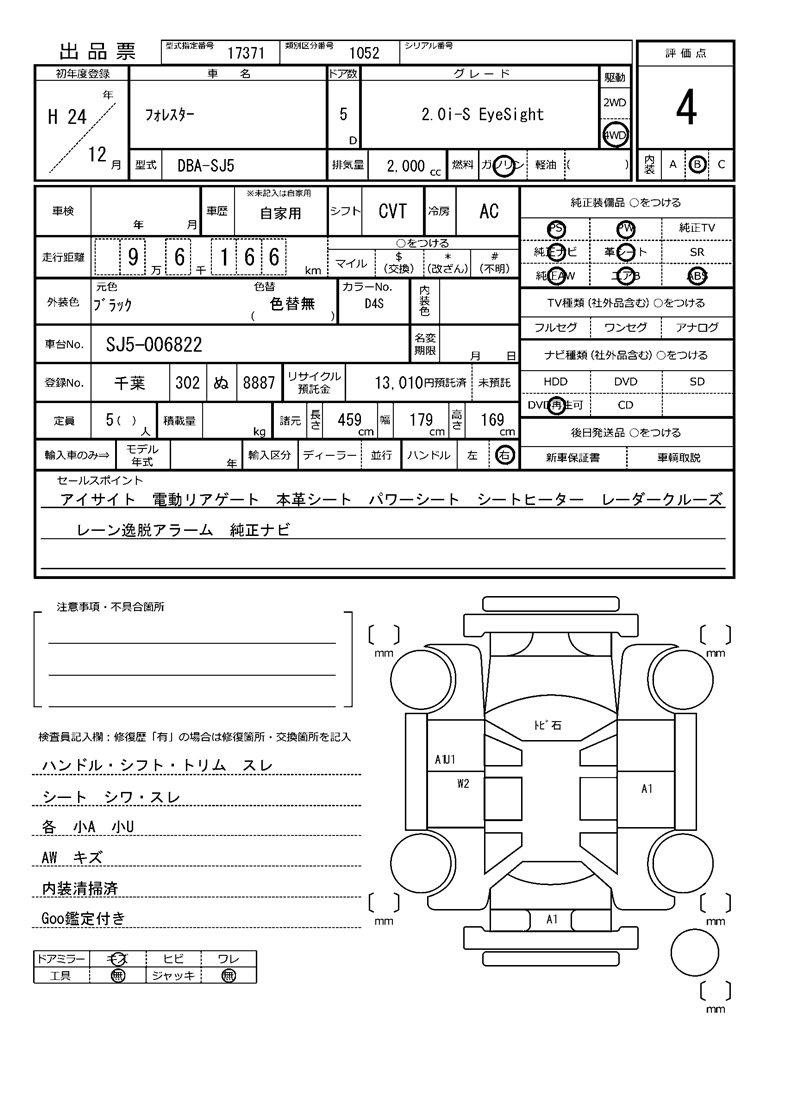 出品票 型式指定番号 17371 類別区分番号 1052 シリアル番号
評価点
4
内装 A B C
初年度登録 車 名 ドア数 グレード 駆動
H 24 年 12 月 フォレスター 5 D 2.0i-S EyeSight 2WD 4WD
型式 DBA-SJ5 排気量 2.000 cc 燃料 ガソリン 軽油 ( )
車検 年 月 車歴 ※未記入は自家用 自家用 シフト CVT 冷房 AC
走行距離 9 万 6 千 1 6 6 km ○をつける
マイル $ (交換) * (改ざん) # (不明)
外装色 元色 ブラック 色替 ( 色替無 ) カラーNo. D4S 内装色
車台No. SJ5-006822 名変期限 月 日
登録No. 千葉 302 ぬ 8887 リサイクル預託金 13,010円預託済 未預託
定員 5 ( ) 人 積載量 kg 諸元 長さ 459 cm 幅 179 cm 高さ 169 cm
輸入車のみ⇒ モデル年式 年 輸入区分 ディーラー 並行 ハンドル 左 右
純正装備品 ○をつける
PS PW 純正TV
純正ナビ 革シート SR
純正AW エアB ABS
TV種類 (社外品含む) ○をつける
フルセグ ワンセグ アナログ
ナビ種類 (社外品含む) ○をつける
HDD DVD SD
DVD再生可 CD
後日発送品 ○をつける
新車保証書 車輌取説
セールスポイント
アイサイト 電動リアゲート 本革シート パワーシート シートヒーター レーダークルーズ
レーン逸脱アラーム 純正ナビ
注意事項・不具合箇所
検査員記入欄：修復歴「有」の場合は修復箇所・交換箇所を記入
ハンドル・シフト・トリム スレ
シート シワ・スレ
各 小A 小U
AW キズ
内装清掃済
Goo鑑定付き
ドアミラー キズ ヒビ ワレ
工具 無 ジャッキ 無
mm mm
トビ石
A1U1
W2 A1
mm mm
A1
mm